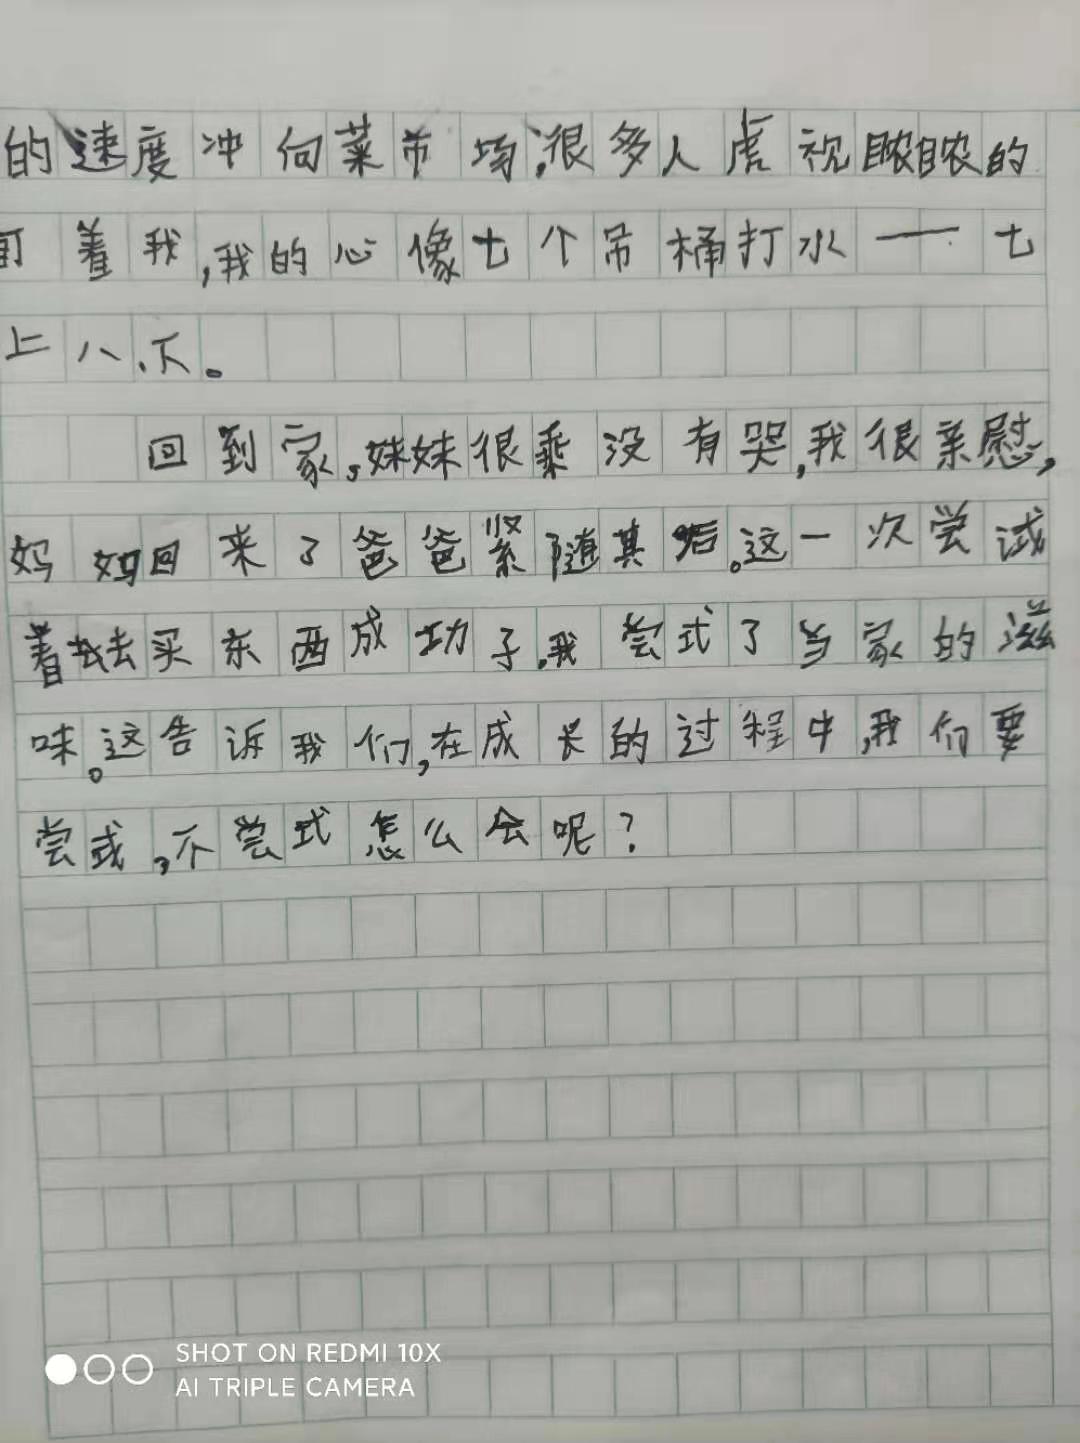 的速度冲向菜市场,很多人虎视眈眈的
盯着我,我的心像七个吊桶打水——七
上八下。
回到家,妹妹很乘没有哭,我很亲慰,
妈妈回来了爸爸紧随其后。这一次尝试
着我去买东西成功了,我尝式了当家的滋
味。这告诉我们,在成长的过程中,我们要
尝式,不尝式怎么会呢?
SHOT ON REDMI 10X
AI TRIPLE CAMERA